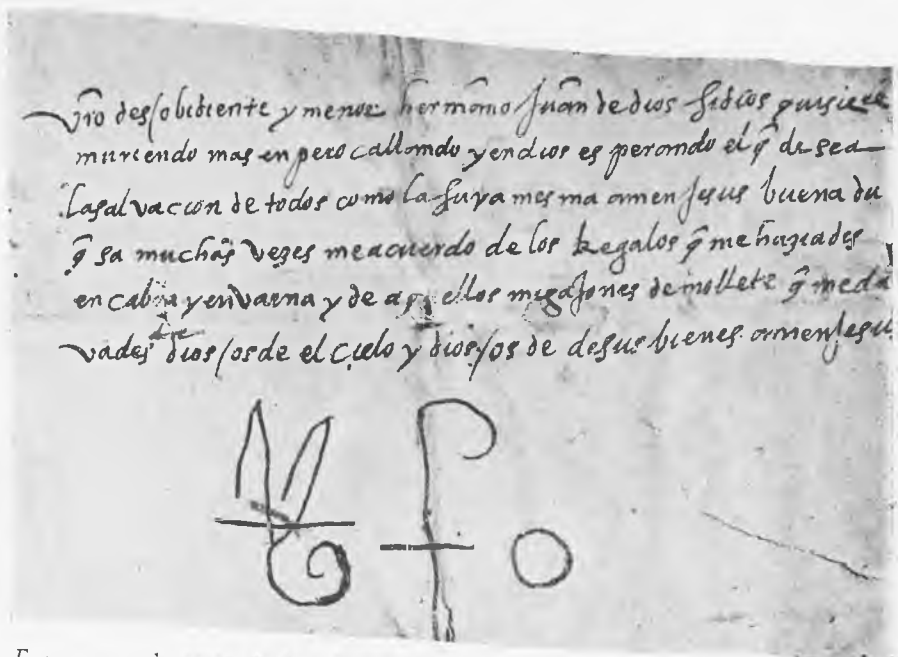 vr̃o desobidiente y menor hermano Juan de dios si dios quisiere
muriendo mas enpero callando y en dios esperando el q̃ desea
la salvacion de todos como la suya mesma amen Jesus buena du
q̃sa muchas vezes me acuerdo de los Regalos q̃ me haziades
en cabra y en vaena y de aq̃ellos migajones de mollete q̃ me da
vades dios os de el cielo y dios os de de sus bienes amen Jesu